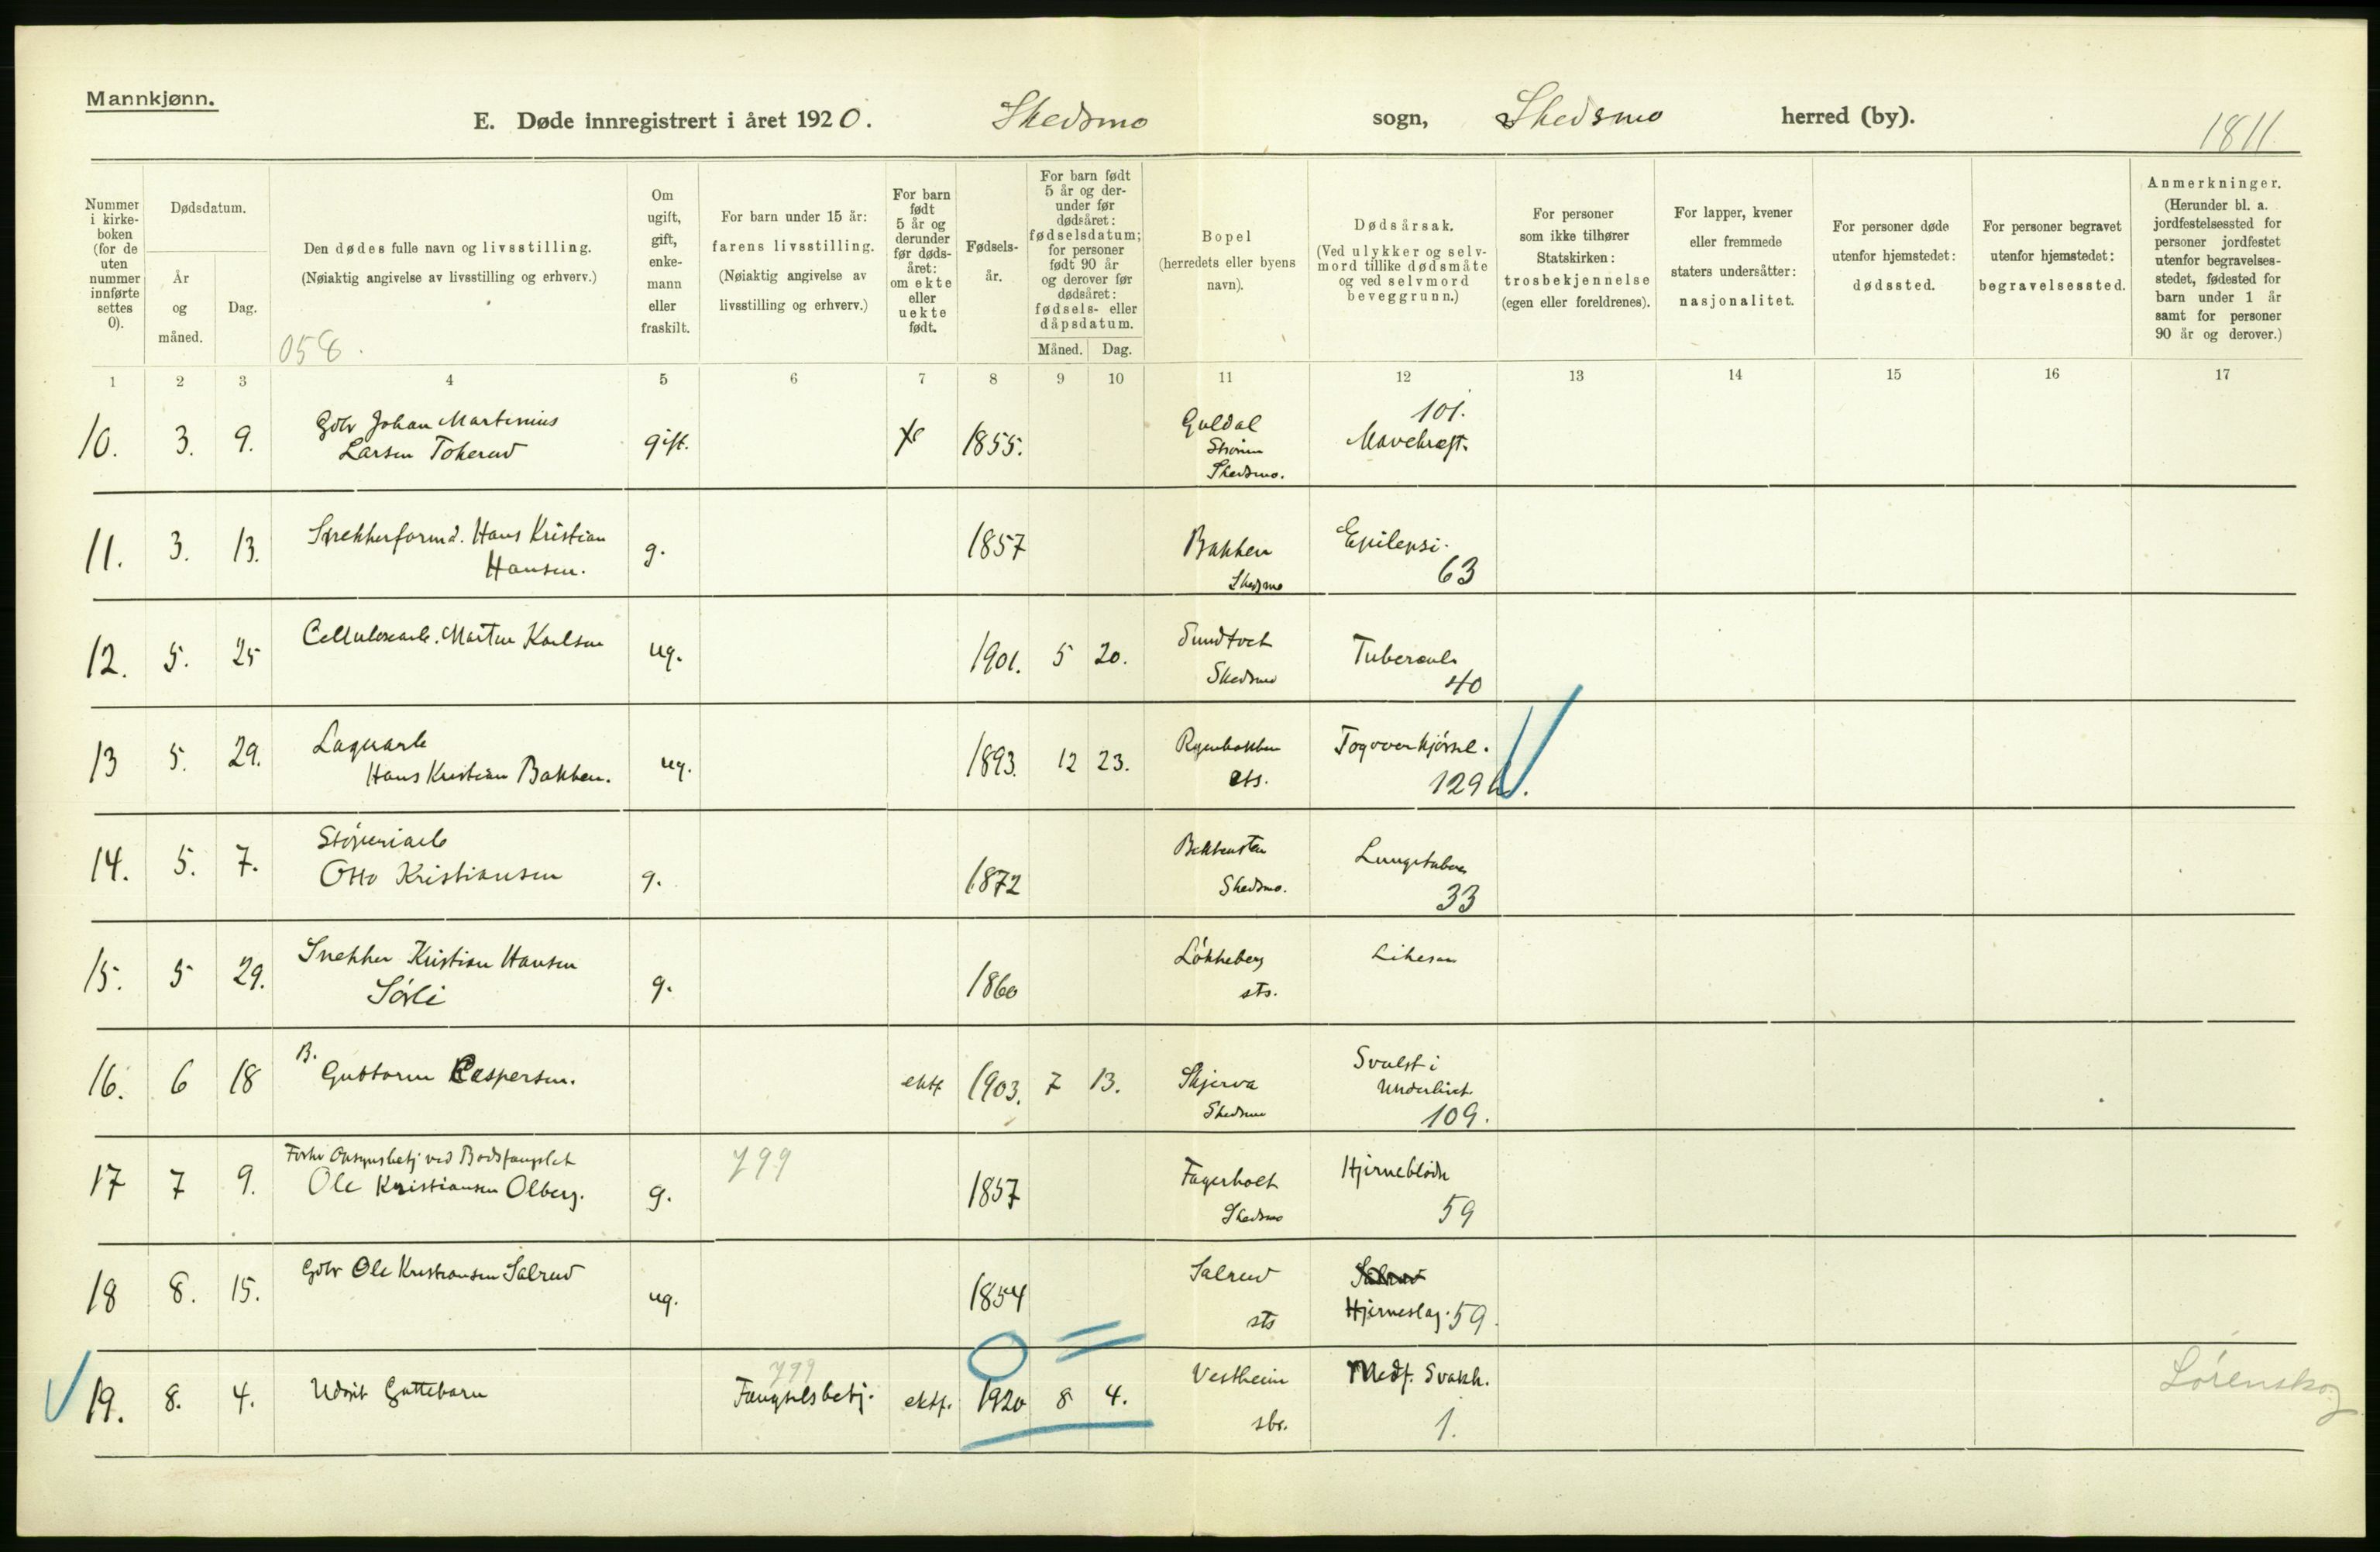 Mannkjønn.
E. Døde innregistrert i året 1920. Skedsmo sogn, Skedsmo herred (by).
1811
Nummer i kirke-boken (for de uten nummer innførte settes 0).
Dødsdatum.
År og måned.
Dag.
Den dødes fulle navn og livsstilling.
(Nøiaktig angivelse av livsstilling og erhverv.)
058.
Om ugift, gift, enke-mann eller fraskilt.
For barn under 15 år:
farens livsstilling.
(Nøiaktig angivelse av
livsstilling og erhverv.)
For barn født 5 år og derunder før døds-året: om ekte eller uekte født.
Fødsels-år.
For barn født 5 år og der-under før dødsåret: fødselsdatum; for personer født 90 år og derover før dødsåret: fødsels- eller dåpsdatum.
Måned. Dag.
Bopel
(herredets eller byens
navn).
Dødsårsak.
(Ved ulykker og selv-
mord tillike dødsmåte
og ved selvmord
beveggrunn.)
For personer
som ikke tilhører
Statskirken:
trosbekjennelse
(egen eller foreldrenes).
For lapper, kvener
eller fremmede
staters undersåtter:
nasjonalitet.
For personer døde
utenfor hjemstedet:
dødssted.
For personer begravet
utenfor hjemstedet:
begravelsessted.
Anmerkninger.
(Herunder bl. a.
jordfestelsessted for
personer jordfestet
utenfor begravelses-
stedet, fødested for
barn under 1 år
samt for personer
90 år og derover.)
1 2 3 4 5 6 7 8 9 10 11 12 13 14 15 16 17
10. 3. 9. Gbr Johan Martinius
Larsen Tokerud gift. 1855. Guldal
Strøm
Skedsmo.
101.
Mavekræft.
11. 3. 13. Snekkerformd. Hans Kristian
Hansen. g. 1857 Bakken
Skedsmo
Epilepsi.
63
12. 5. 25 Cellulosearb. Martin Karlsen ug. 1901. 5 20. Sundtvet
Skedsmo
Tuberculs
40
13 5. 29. Lagerarb
Hans Kristian Bakken. ug. 1893. 12 23.
sts.
Togoverkjørsel.
129
14. 5. 7. Støperiarb
Otto Kristiansen g. 1872
Skedsmo.
Lungetuber
33
15. 5 29. Snekker Kristian Hansen
Sørli g. 1860 Løkkeberg
sts.
16. 6 18 B. Guttorm Caspersen. ekte 1903. 7 13. Skjerva
Skedsmo
Svulst i
Underlivet
109.
17 7 9. Forhv Opsynsbetj ved Bodsfængslet
Ole Kristiansen Olberg. g. 799 1857 Fagerholt
Skedsmo
Hjerneblødn
59
18 8. 15. Gbr Ole Kristiansen Salrud ug. 1854 Salrud
sts
Salrud
Hjerneslag. 59.
19. 8. 4. Udøpt Guttebarn 799
Fængselsbetj. ekte. 1920 8 4. Vestheim
sbs.
Medf. Svakh.
1.
Lørenskog